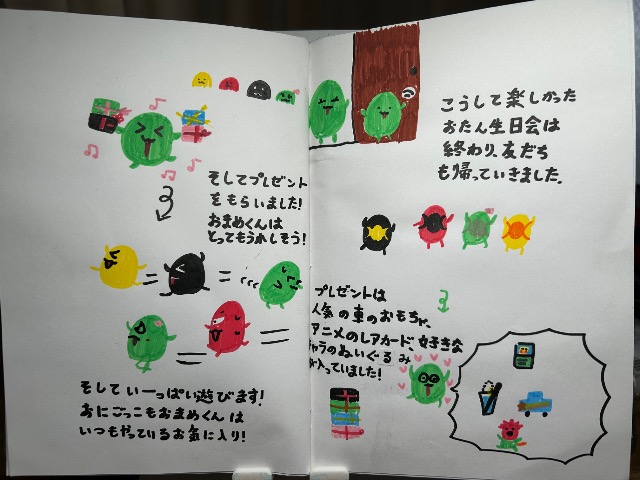 そしてプレゼント
をもらいました!
おまめくんは
とってもうれしそう!
そしていーっぱい遊びます!
おにごっこもおまめくんは
いつもやっているお気に入り!
こうして楽しかった
おたん生日会は
終わり、友だち
も帰っていきました。
プレゼントは
人気の車のおもちゃ、
アニメのレアカード、好きな
キャラのぬいぐるみ
が入っていました!